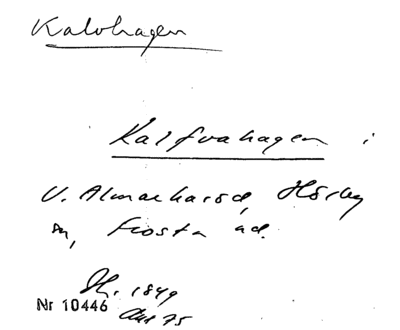 Kalvhagen
Kalfvahagen i
V. Almarharad, Hörby
sn, Frosta hd.
1849
Nr 10446
Akt 75